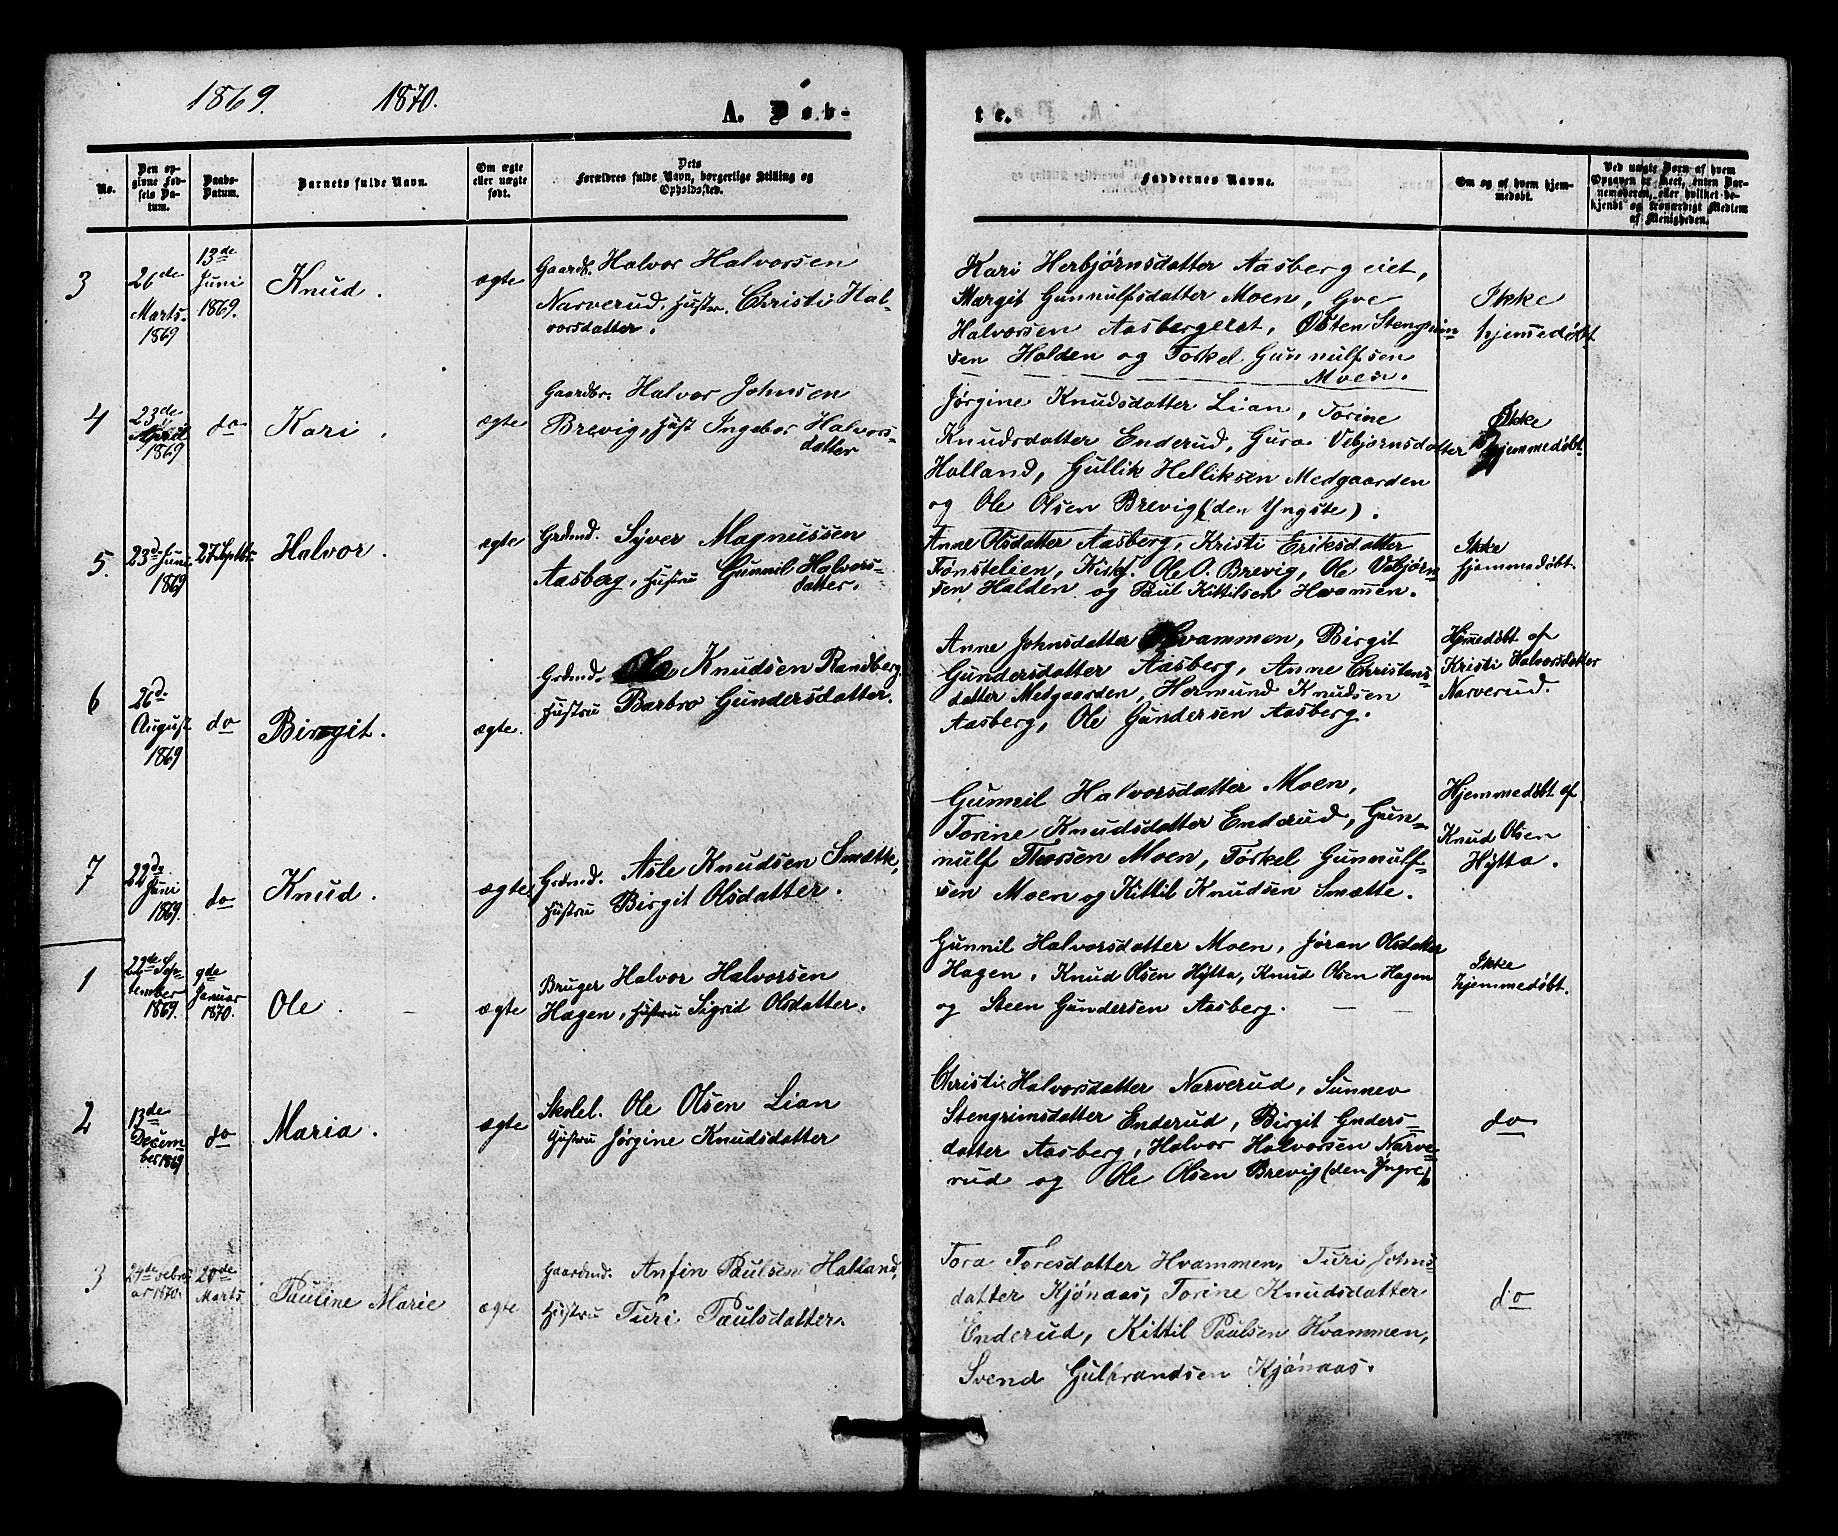 1869. 1870.
A. Døb-
te.
No.
Den op-
givne Fød-
sels Da-
tum.
Daabs-
Datum.
Barnets fulde Navn.
Om ægte
eller uægte
født.
Dets
Forældres fulde Navn, borgerlige Stilling og
Opholdssted.
Faddernes Navne.
Om og af hvem hjem-
medøbt.
Ved uægte Børn af hvem
Opgaven er skeet, enten Bar-
nemoderen, eller hvilket be-
kjendt og troværdigt Medlem
af Menigheden.
3
26de
Marts.
1869
13de
Juni
1869.
Knud.
ægte
Gaardb. Halvor Halvorsen
Narverud, Hustr. Christi Hal-
vorsdatter.
Kari Herbjørnsdatter Aasbergeiet,
Margit Gunnulfsdatter Moen, Gve
Halvorsen Aasbergeiet, Østen Stengrim-
sen Halden og Torkel Gunnulfsen
Moen.
Ikke
hjemmedøbt
4
23de
April
1869
do
Kari.
ægte
Gaardbr. Halvor Johnsen
Brevig, Hust Ingebor Halvors-
datter
Jørgine Knudsdatter Lian, Torine
Knudsdatter Enderud, Guro Vebjørnsdatter
Holland, Gullik Helliksen Medgaarden
og Ole Olsen Brevig (den Yngste).
Ikke
hjemmedøbt
5.
23d Juni
1869
27 Septbr.
Halvor.
ægte
Grdmd. Syver Magnussen
Aasberg, Hustru Gunnil Halvors-
datter.
Anne Olsdatter Aasberg, Kristi Eriksdatter
Tønstelien, Kirks. Ole O. Brevig, Ole Vebjørn-
sen Halden og Paul Kittilsen Hvamen.
Ikke
hjemmedøbt.
6
26d
August
1869
do
Birgit.
ægte.
Grdmd. Ole Knudsen Randberg
Hustru Barbro Gundersdatter.
Anne Johnsdatter Hvammen, Birgit
Gundersdatter Aasberg, Anne Christens-
datter Medgaarden, Hermund Knudsen
Aasberg, Ole Gundersen Aasberg.
Hjemmedøbt af
Kristi Halvorsdatter
Narverud.
7
22d
Juni
1869.
do
Knud.
ægte
Grdmd. Asle Knudsen Smætte,
Hustru Birgit Olsdatter.
Gunnil Halvorsdatter Moen,
Torine Knudsdatter Enderud, Gun-
nulf Thorsen Moen, Torkel Gunnulf-
sen Moen og Kittil Knudsen Smætte.
Hjemmedøbt af
Knud Olsen
Hytta.
1
22de Sep-
tember
1869.
9de
Januar
1870.
Ole
ægte
Bruger Halvor Halvorsen
Hagen, Hustru Sigrid Olsdatter.
Gunnil Halvorsdatter Moen, Jøran Olsdatter
Hagen, Knud Olsen Hytta, Knud Olsen Hagen
og Steen Gundersen Aasberg.
Ikke
hjemmedøbt.
2
13de
Decem-
ber 1869
do
Maria.
ægte
Skolel. Ole Olsen Lian
Hustru Jørgine Knudsdatter
Christi Halvorsdatter Narverud, Sunnev
Stengrimsdatter Enderud, Birgit Gnders-
datter Aasberg, Halvor Halvorsen Narve-
rud og Ole Olsen Brevig (den Yngre)
do
3
24de Febru
ar 1870.
20de
Marts
Pauline Marie
ægte
Gaardmd. Anfin Paulsen Halland,
Hustru Turi Paulsdatter.
Tora Toresdatter Hvammen, Turi Johns-
datter Kjønaas, Torine Knudsdatter
Enderud, Kittil Paulsen Hvammen,
Svend Gulbrandsen Kjønaas.
do